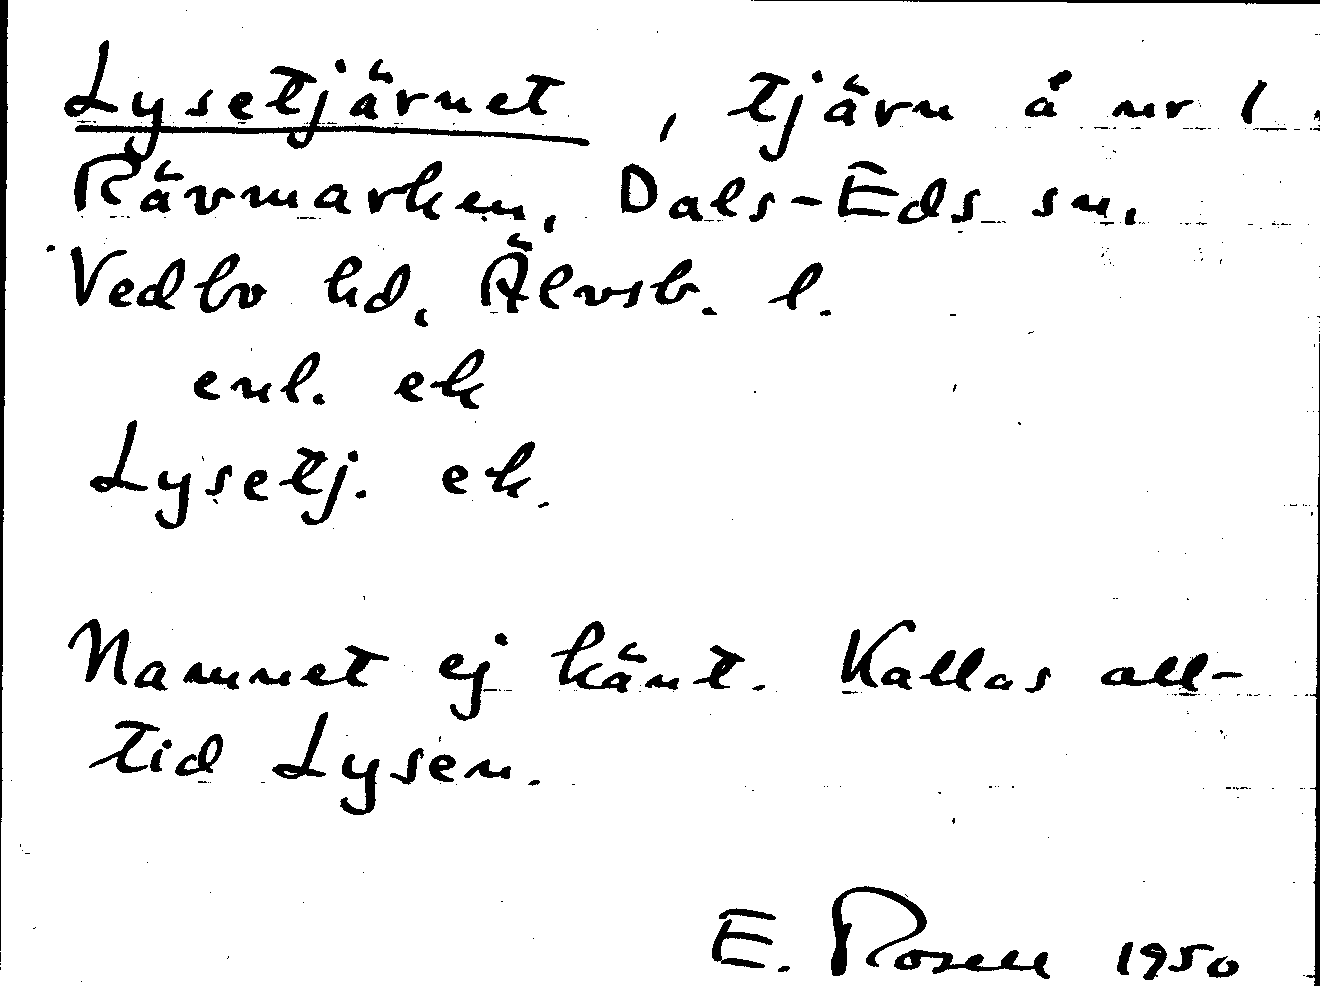 Lysetjärnet, tjärn å nr 1
Rävmarken, Dals-Eds sn,
Vedbo hd, Älvsb. l.
enl. ek
Lysetj. ek.
Namnet ej känt. Kallas all-
tid Lysen.
E. Rosell 1950